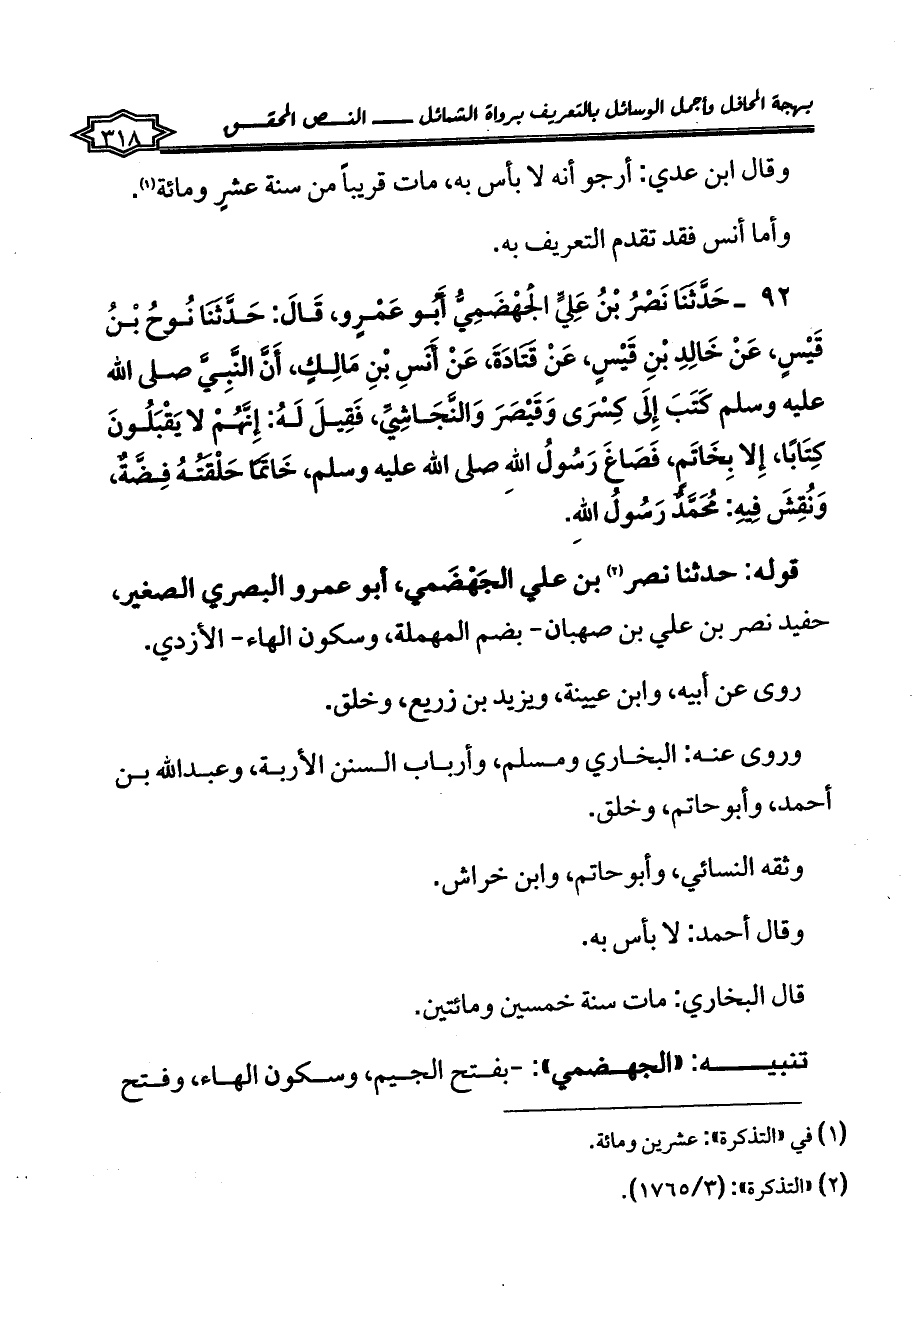 بهجة المحافل وأجمل الوسائل بالتعريف برواة الشمائل ـــــ النـــص المحقـــق
٣١٨
وقال ابن عدي: أرجو أنه لا بأس به، مات قريباً من سنة عشرٍ ومائة(١).
وأما أنس فقد تقدم التعريف به.
٩٢ ـ حَدَّثَنَا نَصْرُ بْنُ عَلِيٍّ الْجَهْضَمِيُّ أَبُو عَمْرٍو، قَالَ: حَدَّثَنَا نُوحُ بْنُ
قَيْسٍ، عَنْ خَالِدِ بْنِ قَيْسٍ، عَنْ قَتَادَةَ، عَنْ أَنَسِ بْنِ مَالِكٍ، أَنَّ النَّبِيَّ صلى الله
عليه وسلم كَتَبَ إِلَى كِسْرَى وَقَيْصَرَ وَالنَّجَاشِيِّ، فَقِيلَ لَهُ: إِنَّهُمْ لا يَقْبَلُونَ
كِتَابًا، إِلا بِخَاتَمٍ، فَصَاغَ رَسُولُ اللهِ صلى الله عليه وسلم، خَاتَمًا حَلْقَتُهُ فِضَّةٌ،
وَنُقِشَ فِيهِ: مُحَمَّدٌ رَسُولُ اللهِ.
قوله: حدثنا نصر(٢) بن علي الجَهْضَمي، أبو عمرو البصري الصغير،
حفيد نصر بن علي بن صهبان- بضم المهملة، وسكون الهاء- الأزدي.
روى عن أبيه، وابن عيينة، ويزيد بن زريع، وخلق.
وروى عنـه: البخـاري ومسلم، وأربـاب السنن الأربة، وعبدالله بـن
أحمد، وأبو حاتم، وخلق.
وثقه النسائي، وأبو حاتم، وابن خراش.
وقال أحمد: لا بأس به.
قال البخاري: مات سنة خمسين ومائتين.
تنبيـــــه: «الجهـضمي»: -بفـتح الجيم، وسـكون الهـاء، وفتح
(١) في «التذكرة»: عشرين ومائة.
(٢) «التذكرة»: (٣/ ١٧٦٥).